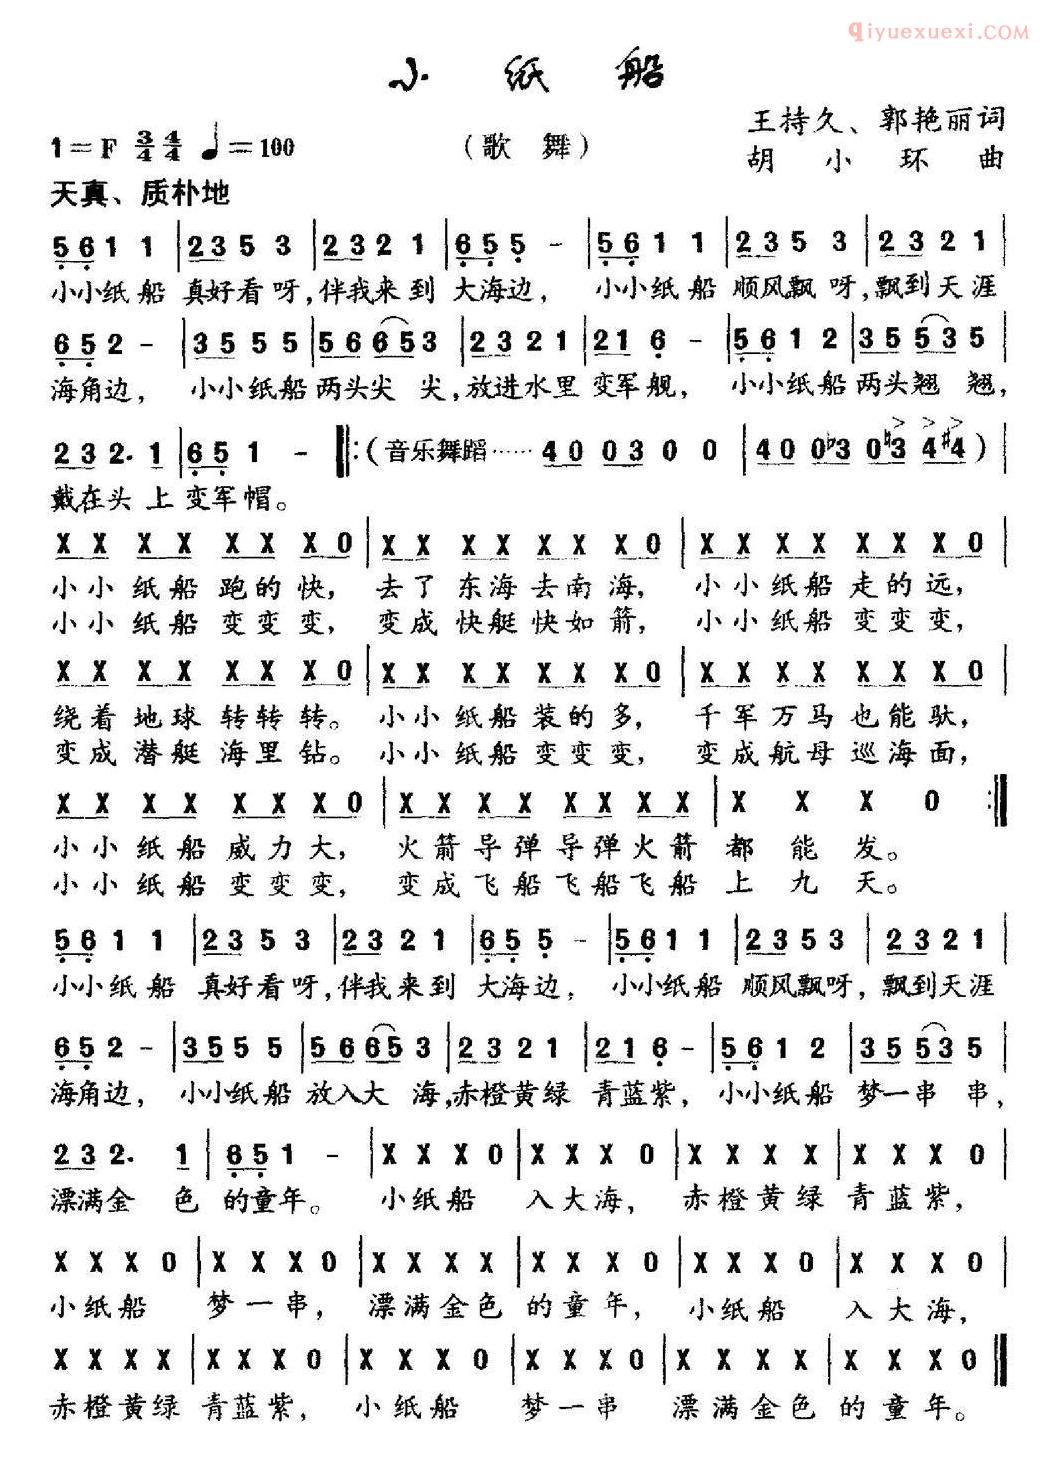 qiyuexuexi.COM
小 纸 船
1=F 3/4 4/4 ♩=100 （歌 舞） 王持久、郭艳丽词
胡 小 环 曲
天真、质朴地
5 6 1 1 | 2 3 5 3 | 2 3 2 1 | 6 5 5 - | 5 6 1 1 | 2 3 5 3 | 2 3 2 1 |
小小纸船 真好看呀,伴我来到 大海边， 小小纸船 顺风飘呀,飘到天涯
6 5 2 - | 3 5 5 5 | 5 6 6 5 3 | 2 3 2 1 | 2 1 6 - | 5 6 1 2 | 3 5 5 3 5 |
海角边， 小小纸船 两头尖 尖,放进水里 变军舰， 小小纸船 两头翘 翘,
2 3 2. 1 | 6 5 1 - ‖: （音乐舞蹈…… 4 0 0 3 0 0 | 4 0 0 ♭3 0 ♮3 4 ♯4 ） |
戴在头 上 变军帽。
X X X X X X X 0 | X X X X X X X 0 | X X X X X X X 0 |
小小纸船跑的快， 去了东海去南海， 小小纸船走的远，
小小纸船变变变， 变成快艇快如箭， 小小纸船变变变，
X X X X X X X 0 | X X X X X X X 0 | X X X X X X X 0 |
绕着地球转转转。 小小纸船装的多， 千军万马也能驮，
变成潜艇海里钻。 小小纸船变变变， 变成航母巡海面，
X X X X X X X 0 | X X X X X X X X | X X X 0 :‖
小小纸船威力大， 火箭导弹导弹火箭 都 能 发。
小小纸船变变变， 变成飞船飞船飞船 上 九 天。
5 6 1 1 | 2 3 5 3 | 2 3 2 1 | 6 5 5 - | 5 6 1 1 | 2 3 5 3 | 2 3 2 1 |
小小纸船 真好看呀,伴我来到 大海边， 小小纸船 顺风飘呀，飘到天涯
6 5 2 - | 3 5 5 5 | 5 6 6 5 3 | 2 3 2 1 | 2 1 6 - | 5 6 1 2 | 3 5 5 3 5 |
海角边， 小小纸船 放入大 海,赤橙黄绿 青蓝紫， 小小纸船 梦一串 串，
2 3 2. 1 | 6 5 1 - | X X X 0 | X X X 0 | X X X X | X X X 0 |
漂满金 色 的童年。 小纸船 入大海， 赤橙黄绿 青蓝紫，
X X X 0 | X X X 0 | X X X X | X X X 0 | X X X 0 | X X X 0 |
小纸船 梦一串， 漂满金色 的童年， 小纸船 入大海，
X X X X | X X X 0 | X X X 0 | X X X 0 | X X X X | X X X 0 ‖
赤橙黄绿 青蓝紫， 小纸船 梦一串 漂满金色 的童年。